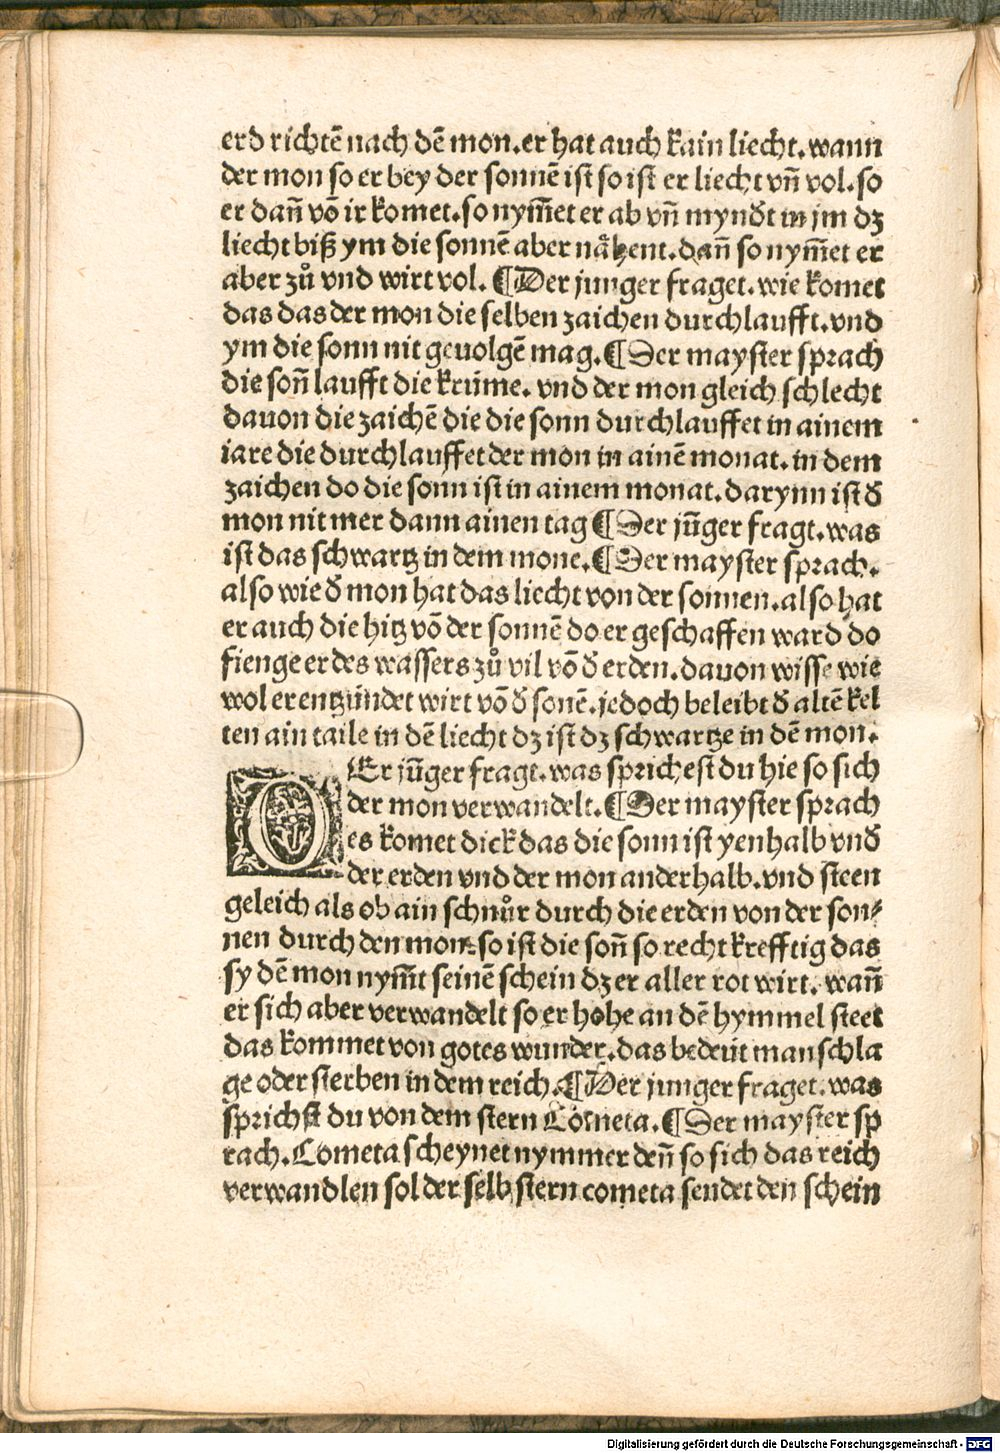 erd richtē nach dē mon. er hat auch kain liecht. wann
der mon so er bey der sonnē ist so ist er liecht vn̄ vol. so
er dan̄ vō ir komet. so nym̄et er ab vn̄ myndt in jm dz
liecht biß ym die sonnē aber nåhent. dan̄ so nym̄et er
aber zů vnd wirt vol. ¶ Der junger fraget. wie komet
das das der mon die selben zaichen durchlaufft. vnd
ym die sonn nit geuolgē mag. ¶ Der mayster sprach
die son̄ laufft die krüme. vnd der mon gleich schlecht
dauon die zaichē die die sonn durchlauffet in ainem
iare die durchlauffet der mon in ainē monat. in dem
zaichen do die sonn ist in ainem monat. darynn ist đ
mon nit mer dann ainen tag ¶ Der jün̄ger fragt. was
ist das schwartz in dem mone. ¶ Der mayster sprach.
also wie đ mon hat das liecht von der sonnen. also hat
er auch die hitz vō der sonnē do er geschaffen ward do
fienge er des wassers zů vil vō đ erden. dauon wisse wie
wol er entzündet wirt vō đ sonē. jedoch beleibt đ altē kel
ten ain taile in dē liecht dz ist dz schwartze in dē mon.
DEr jün̄ger fragt. was sprichest du hie so sich
der mon verwandelt. ¶ Der mayster sprach
es komet dick das die sonn ist yenhalb vnđ
der erden vnd der mon anderhalb. vnd steen
geleich als ob ain schnůr durch die erden von der son⸗
nen durch den mon. so ist die son̄ so recht krefftig das
sy dē mon nym̄t seinē schein dz er aller rot wirt. wan̄
er sich aber verwandelt so er hohe an dē hymmel steet
das kommet von gotes wunder. das bedeüt manschla
ge oder sterben in dem reich. ¶ Der junger fraget. was
sprichst du von dem stern Cometa. ¶ Der mayster sp
rach. Cometa scheynet nymmer den̄ so sich das reich
verwandlen sol der selb stern cometa sendet den schein
Digitalisierung gefördert durch die Deutsche Forschungsgemeinschaft - DFG